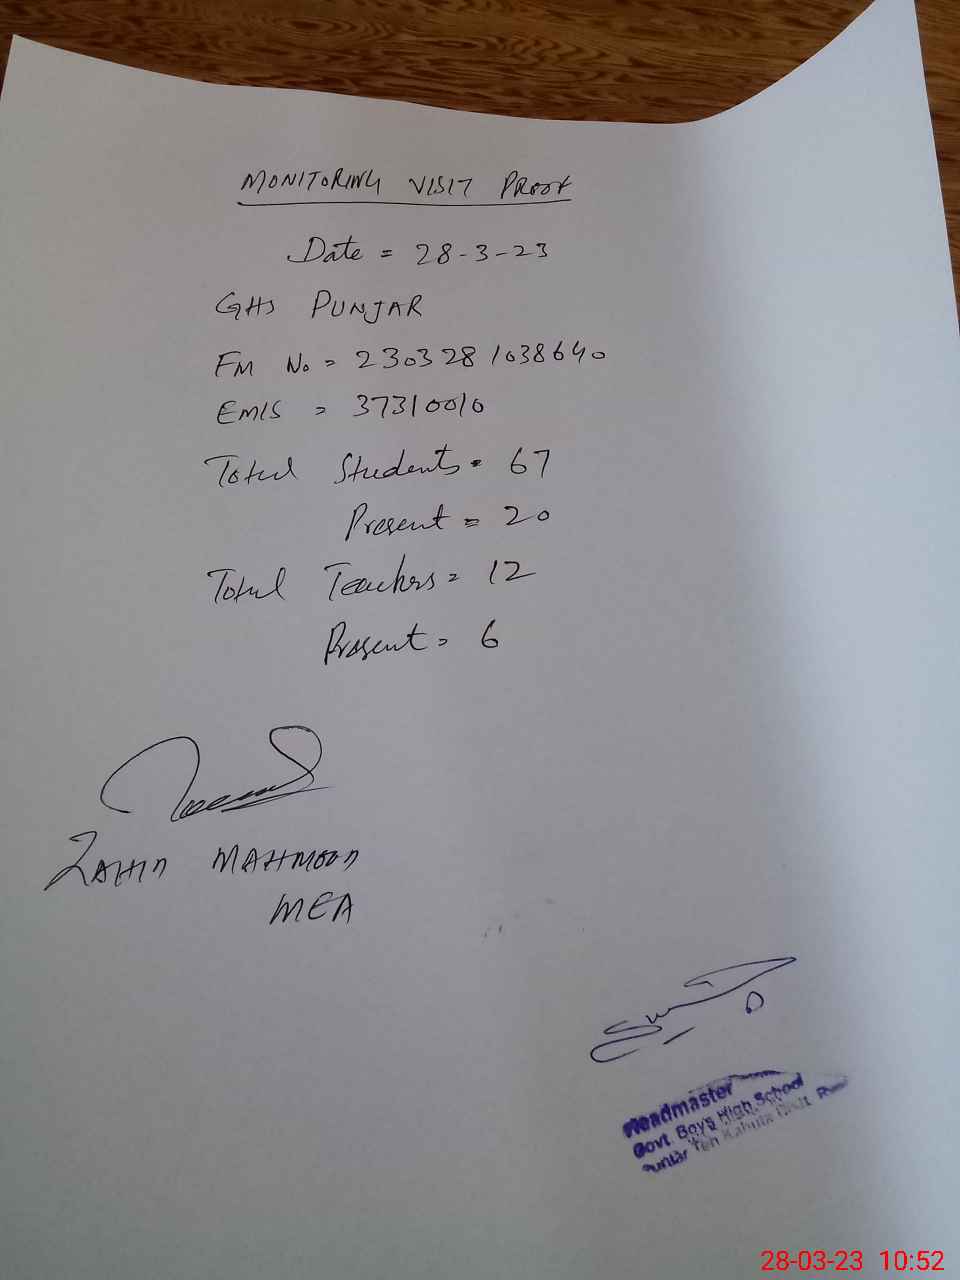 MONITORING VISIT PROOF
Date = 28-3-23
GHS PUNJAR
FM No = 2303281038640
EMIS = 37310010
Total Students = 67
Present = 20
Total Teachers = 12
Present = 6
ZAHID MAHMOOD
MEA
Headmaster
Govt. Boys High School
Punjar Teh Kahuta Distt
28-03-23 10:52